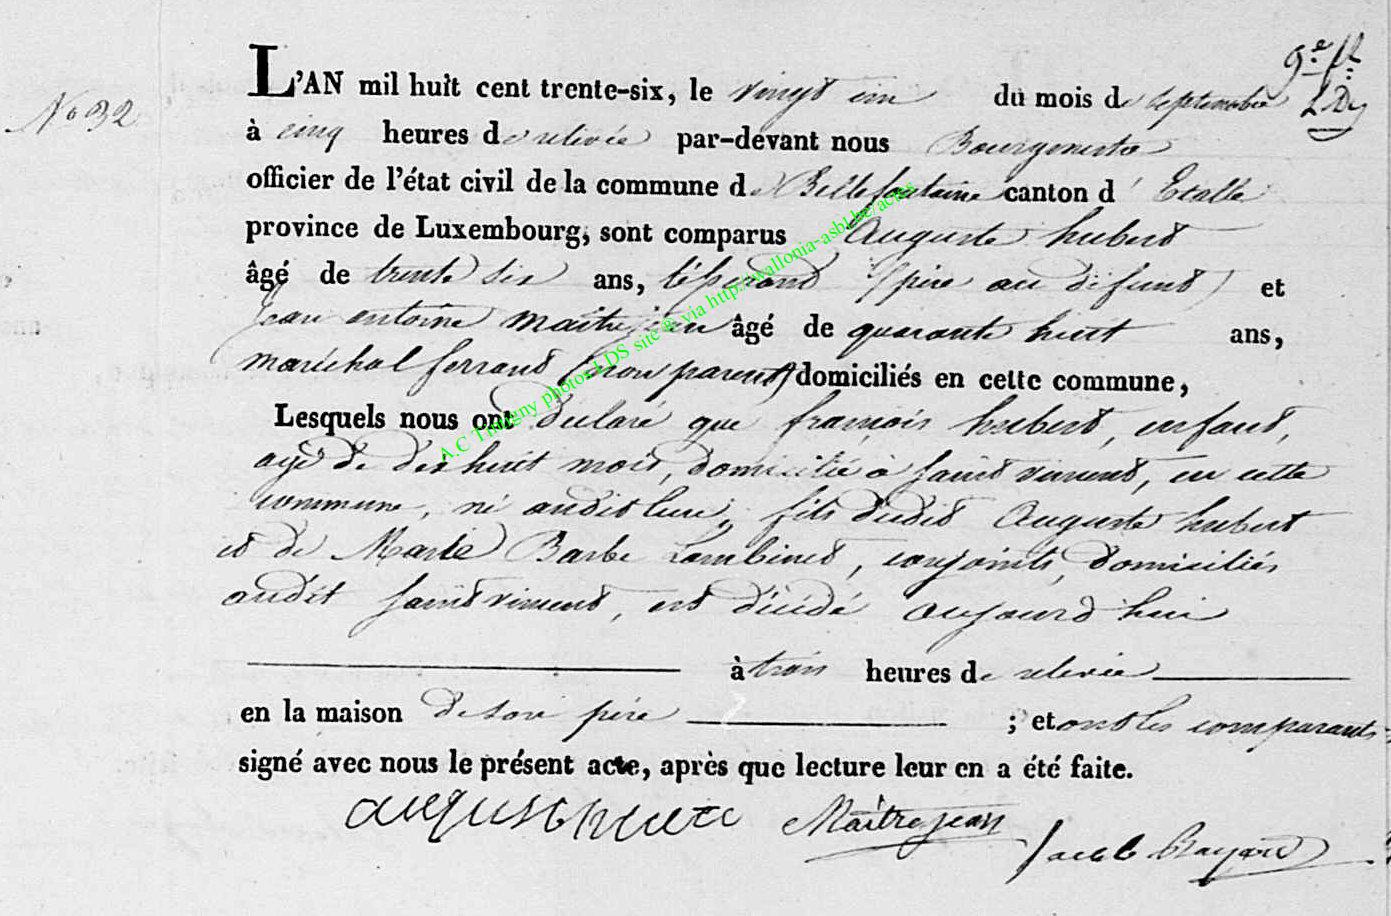 No 32
L'AN mil huit cent trente-six, le vingt un du mois de septembre
à cinq heures de relevée par-devant nous Bourgmestre
officier de l'état civil de la commune de Bellefontaine canton d'Etalle
province de Luxembourg, sont comparus Auguste hubert
âgé de trente six ans, tisserand (père au défunt) et
Jean antoine maitrejean âgé de quarante huit ans,
maréchal ferrant (non parent) domiciliés en cette commune,
Lesquels nous ont déclaré que françois hubert, enfant,
agé de dix huit mois, domicilié à saint vincent, en cette
commune, né audit lieu, fils dudit Auguste hubert
et de Marie Barbe Lambinet, conjoints, domiciliés
audit saint vincent, est décédé aujourd'hui
à trois heures de relevée
en la maison de son père ; et ont les comparants
signé avec nous le présent acte, après que lecture leur en a été faite.
auguste hubert Maitrejean
A.C Tintigny photos LDS site @ via http://wallonia-asbl.be/actes